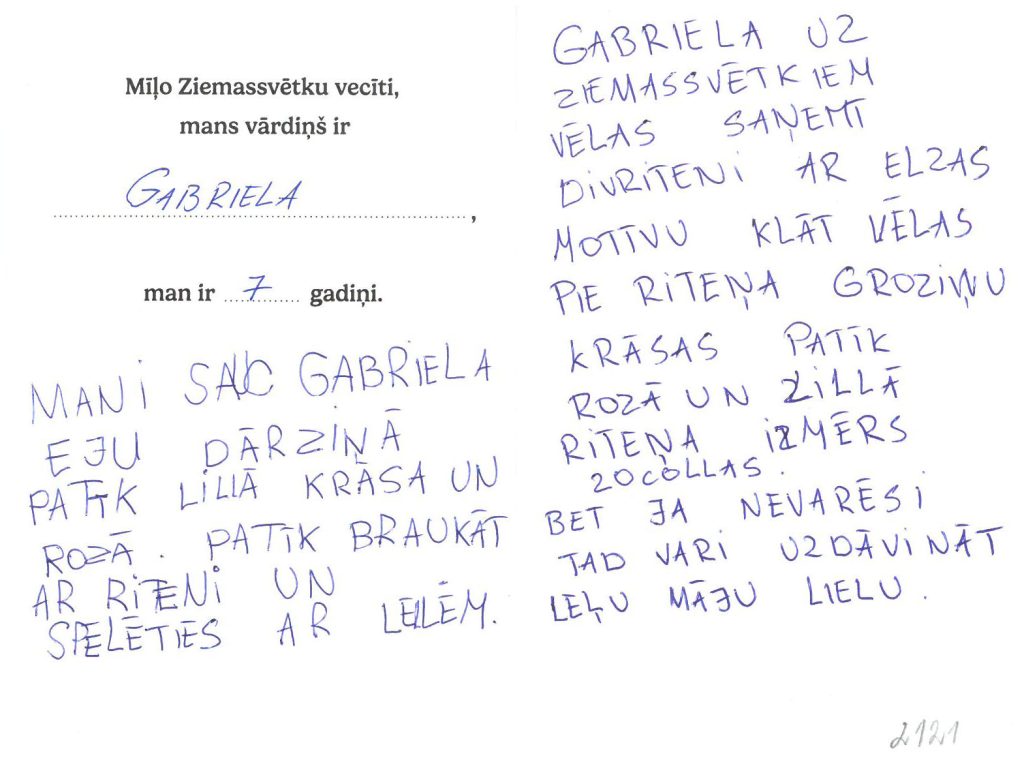 Mīļo Ziemassvētku vecīti,
mans vārdiņš ir
GABRIELA,
man ir 7 gadiņi.
MANI SAUC GABRIELA
EJU DĀRZIŅĀ
PATĪK LILLĀ KRĀSA UN
ROZĀ. PATĪK BRAUKĀT
AR RITENI UN
SPĒLĒTIES AR LELLĒM.
GABRIELA UZ
ZIEMASSVĒTKIEM
VĒLAS SAŅEMT
DIVRITENI AR ELZAS
MOTĪVU KLĀT VĒLAS
PIE RITEŅA GROZIŅU
KRĀSAS PATĪK
ROZĀ UN LILLĀ
RITEŅA IZMĒRS
20COLLAS.
BET JA NEVARĒSI
TAD VARI UZDĀVINĀT
LEĻU MĀJU LIELU.
2121